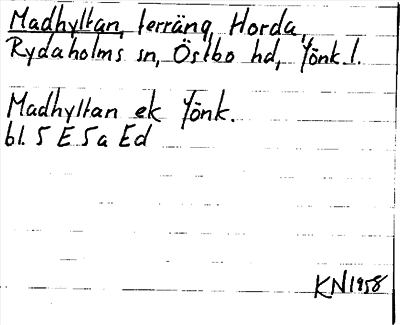 Madhyltan, terräng, Horda,
Rydaholms sn, Östbo hd, Jönk. l.
Madhyltan ek Jönk.
bl. 5 E 5a Ed
KN1958